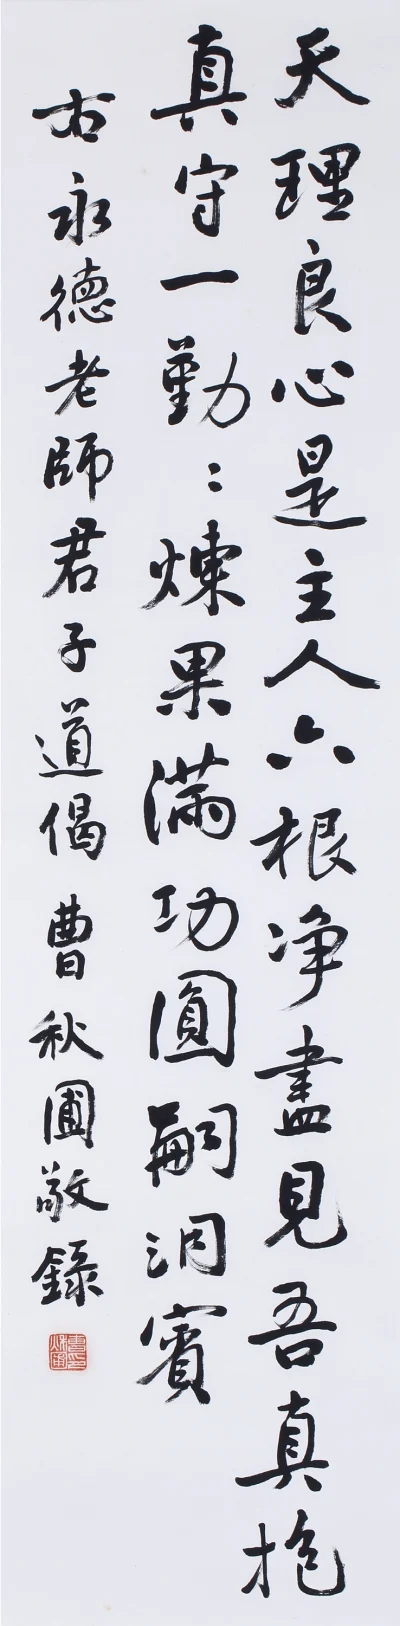 天理良心是主人六根净盡見吾真抱
真守一勤〻煉果滿功圓嗣洞賓
右永德老師君子道偈 曹秋圃敬錄